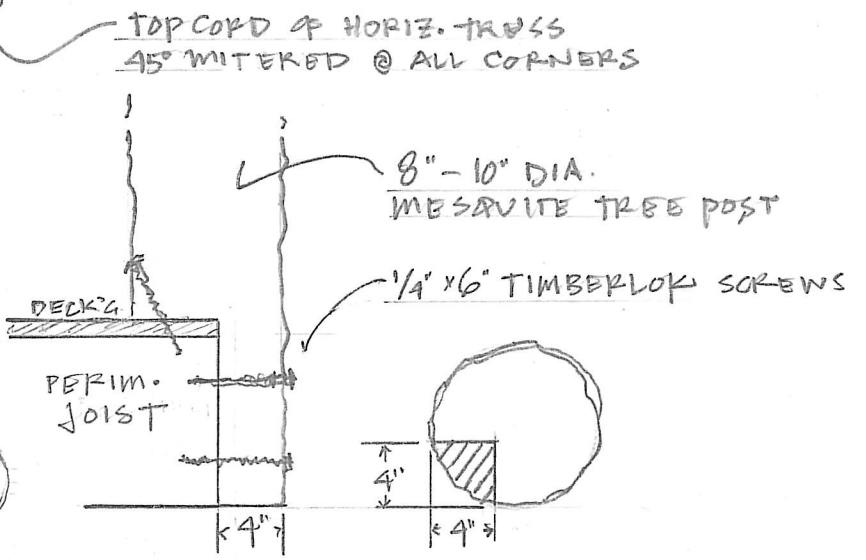 TOP CORD OF HORIZ. TRUSS
45° MITERED @ ALL CORNERS
8" - 10" DIA.
MESQUITE TREE POST
1/4" x 6" TIMBERLOK SCREWS
DECK'G
PERIM.
JOIST
4"
4"
4"